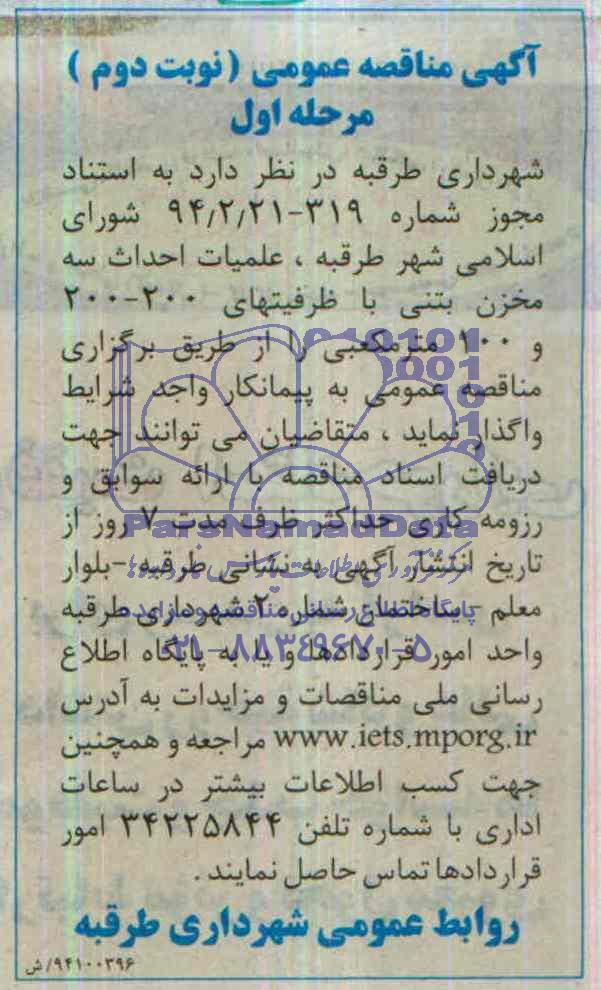 آگهی مناقصه عمومی (نوبت دوم)
مرحله اول
شهرداری طرقبه در نظر دارد به استناد
مجوز شماره ۳۱۹-۹۴/۲/۲۱ شورای
اسلامی شهر طرقبه ، علمیات احداث سه
مخزن بتنی با ظرفیتهای ۲۰۰-۲۰۰
و ۱۰۰ مترمکعبی را از طریق برگزاری
مناقصه عمومی به پیمانکار واجد شرایط
واگذار نماید ، متقاضیان می توانند جهت
دریافت اسناد مناقصه با ارائه سوابق و
رزومه کاری حداکثر ظرف مدت ۷ روز از
تاریخ انتشار آگهی به نشانی طرقبه -بلوار
معلم - ساختمان شماره ۲ شهرداری طرقبه
واحد امور قراردادها و یا به پایگاه اطلاع
رسانی ملی مناقصات و مزایدات به آدرس
www.iets.mporg.ir مراجعه و همچنین
جهت کسب اطلاعات بیشتر در ساعات
اداری با شماره تلفن ۳۴۲۲۵۸۴۴ امور
قراردادها تماس حاصل نمایند .
روابط عمومی شهرداری طرقبه
۹۴۱۰۰۳۹۶/ش
ParsNamadData
پایگاه اطلاع رسانی مناقصه و مزایده
۰۲۱-۸۸۳۴۹۶۷۰-۵